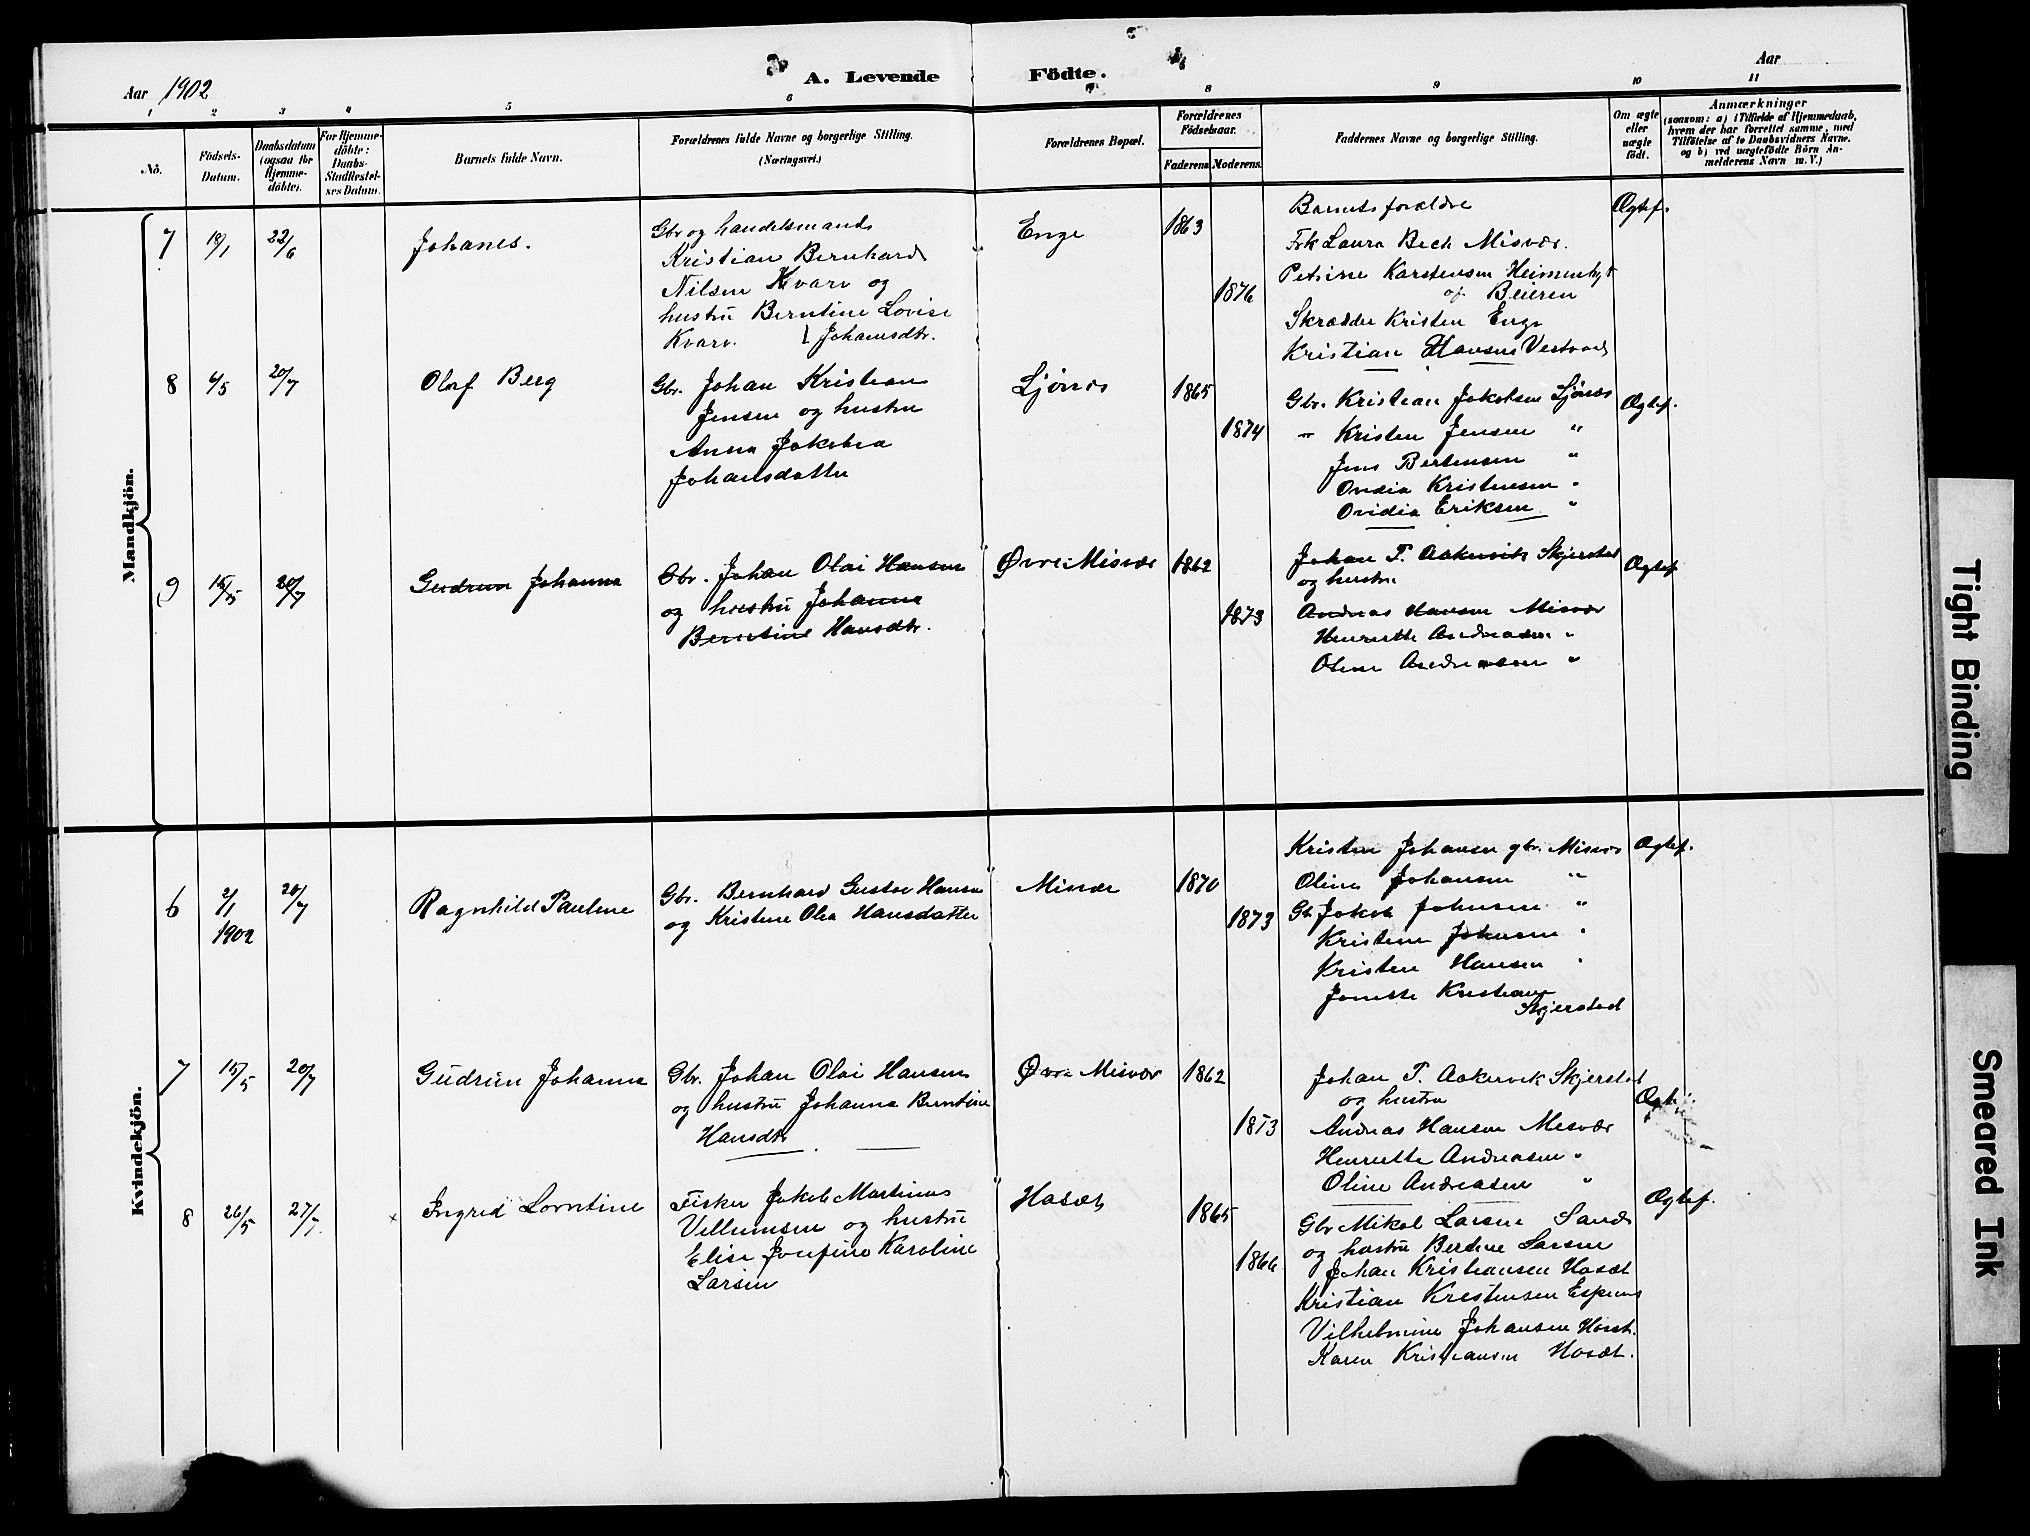 Aar 1902
A. Levende Födte.
Aar
1 2 3 4 5 6 7 8 9 10 11
No.
Födsels-Datum.
Daabsdatum (ogsaa for Hjemmedöbte).
For Hjemmedöbte: Daabs-Stadfæstelses Datum.
Barnets fulde Navn.
Forældrenes fulde Navne og borgerlige Stilling.
(Næringsvei.)
Forældrenes Bopæl.
Forældrenes Födselsaar.
Faderens. Moderens.
Faddernes Navne og borgerlige Stilling.
Om ægte eller uægte födt.
Anmærkninger
(saasom: a) i Tilfælde af Hjemmedaab,
hvem der har forrettet samme, med
Tilföielse af to Daabsvidners Navne.
og b) ved uægtefödte Börn An-
melderens Navn m. V.)
Mandkjön.
7 18/1 22/6 Johanes.
Gbr og handelsmand
Kristian Bernhard
Nilsen Kvarv og
hustru Berntine Lovise
Kvarv. Johansdtr.
Enge 1863 1876
Barnets forældre
Frk Laura Bech Misvær.
Petrine Karstensen
af Beieren
Skrædder Kristen Enge
Kristian Hansen
Ægtef.
8 6/5 20/7 Olaf Berg
Gbr. Johan Kristian
Jensen og hustru
Anna Jakobea
Johansdatter
Ljönes 1865 1874
Gbr. Kristian Jakobsen Ljönes
- Kristen Jensen "
Jens Bertensen "
Ovidia Kristensen "
Ovidia Eriksen "
Ægtef.
9 15/5 20/7 Gudrun Johanna
Gbr. Johan Olai Hansen
og hustru Johanna
Berntine Hansdtr.
Øvre Misvær 1862 1873
Johan P. Aakervik Skjerstad
og hustru
Andreas Hansen Misvær
Henriette Andreasen "
Oline Andreasen "
Ægtef
Kvindekjön.
6 2/1 1902 20/7 Ragnhild Pauline
Gbr. Bernhard Gustav Hansen
og Kristine Olea Hansdatter
Misvær 1870 1873
Kristen Johansen gbr. Misvær
Oline Johansen "
Gb. Jakob Johnsen "
Kristine Johnsen "
Kristen Hansen "
Jonette Kristians
Skjerstad
Ægtef.
7 15/5 20/7 Gudrun Johanna
Gbr. Johan Olai Hansen
og hustru Johanna Berntine
Hansdtr
Øvre Misvær 1862 1873
Johan P. Aakervik Skjerstad
og hustru
Andreas Hansen Misvær
Henriette Andreasen "
Oline Andreasen "
Ægtef.
8 26/5 27/7 x Ingrid Lorntine
Fisker Jakob Martinus
Villumsen og hustru
Elise Josefine Karoline
Larsen
Hasæt 1865 1866
Gbr Mikal Larsen Sand
og hustru Berdine Larsen
Johan Kristiansen Hosæt
Kristian Kristensen Espenes
Vilhelmine Johansen Hosæt.
Karen Kristiansen Hosæt.
Ægtef.
Tight Binding
Smeared Ink